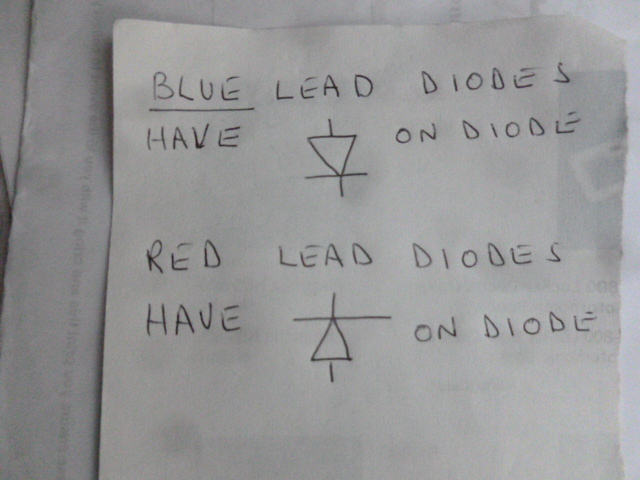 BLUE LEAD DIODES
HAVE ON DIODE
RED LEAD DIODES
HAVE ON DIODE